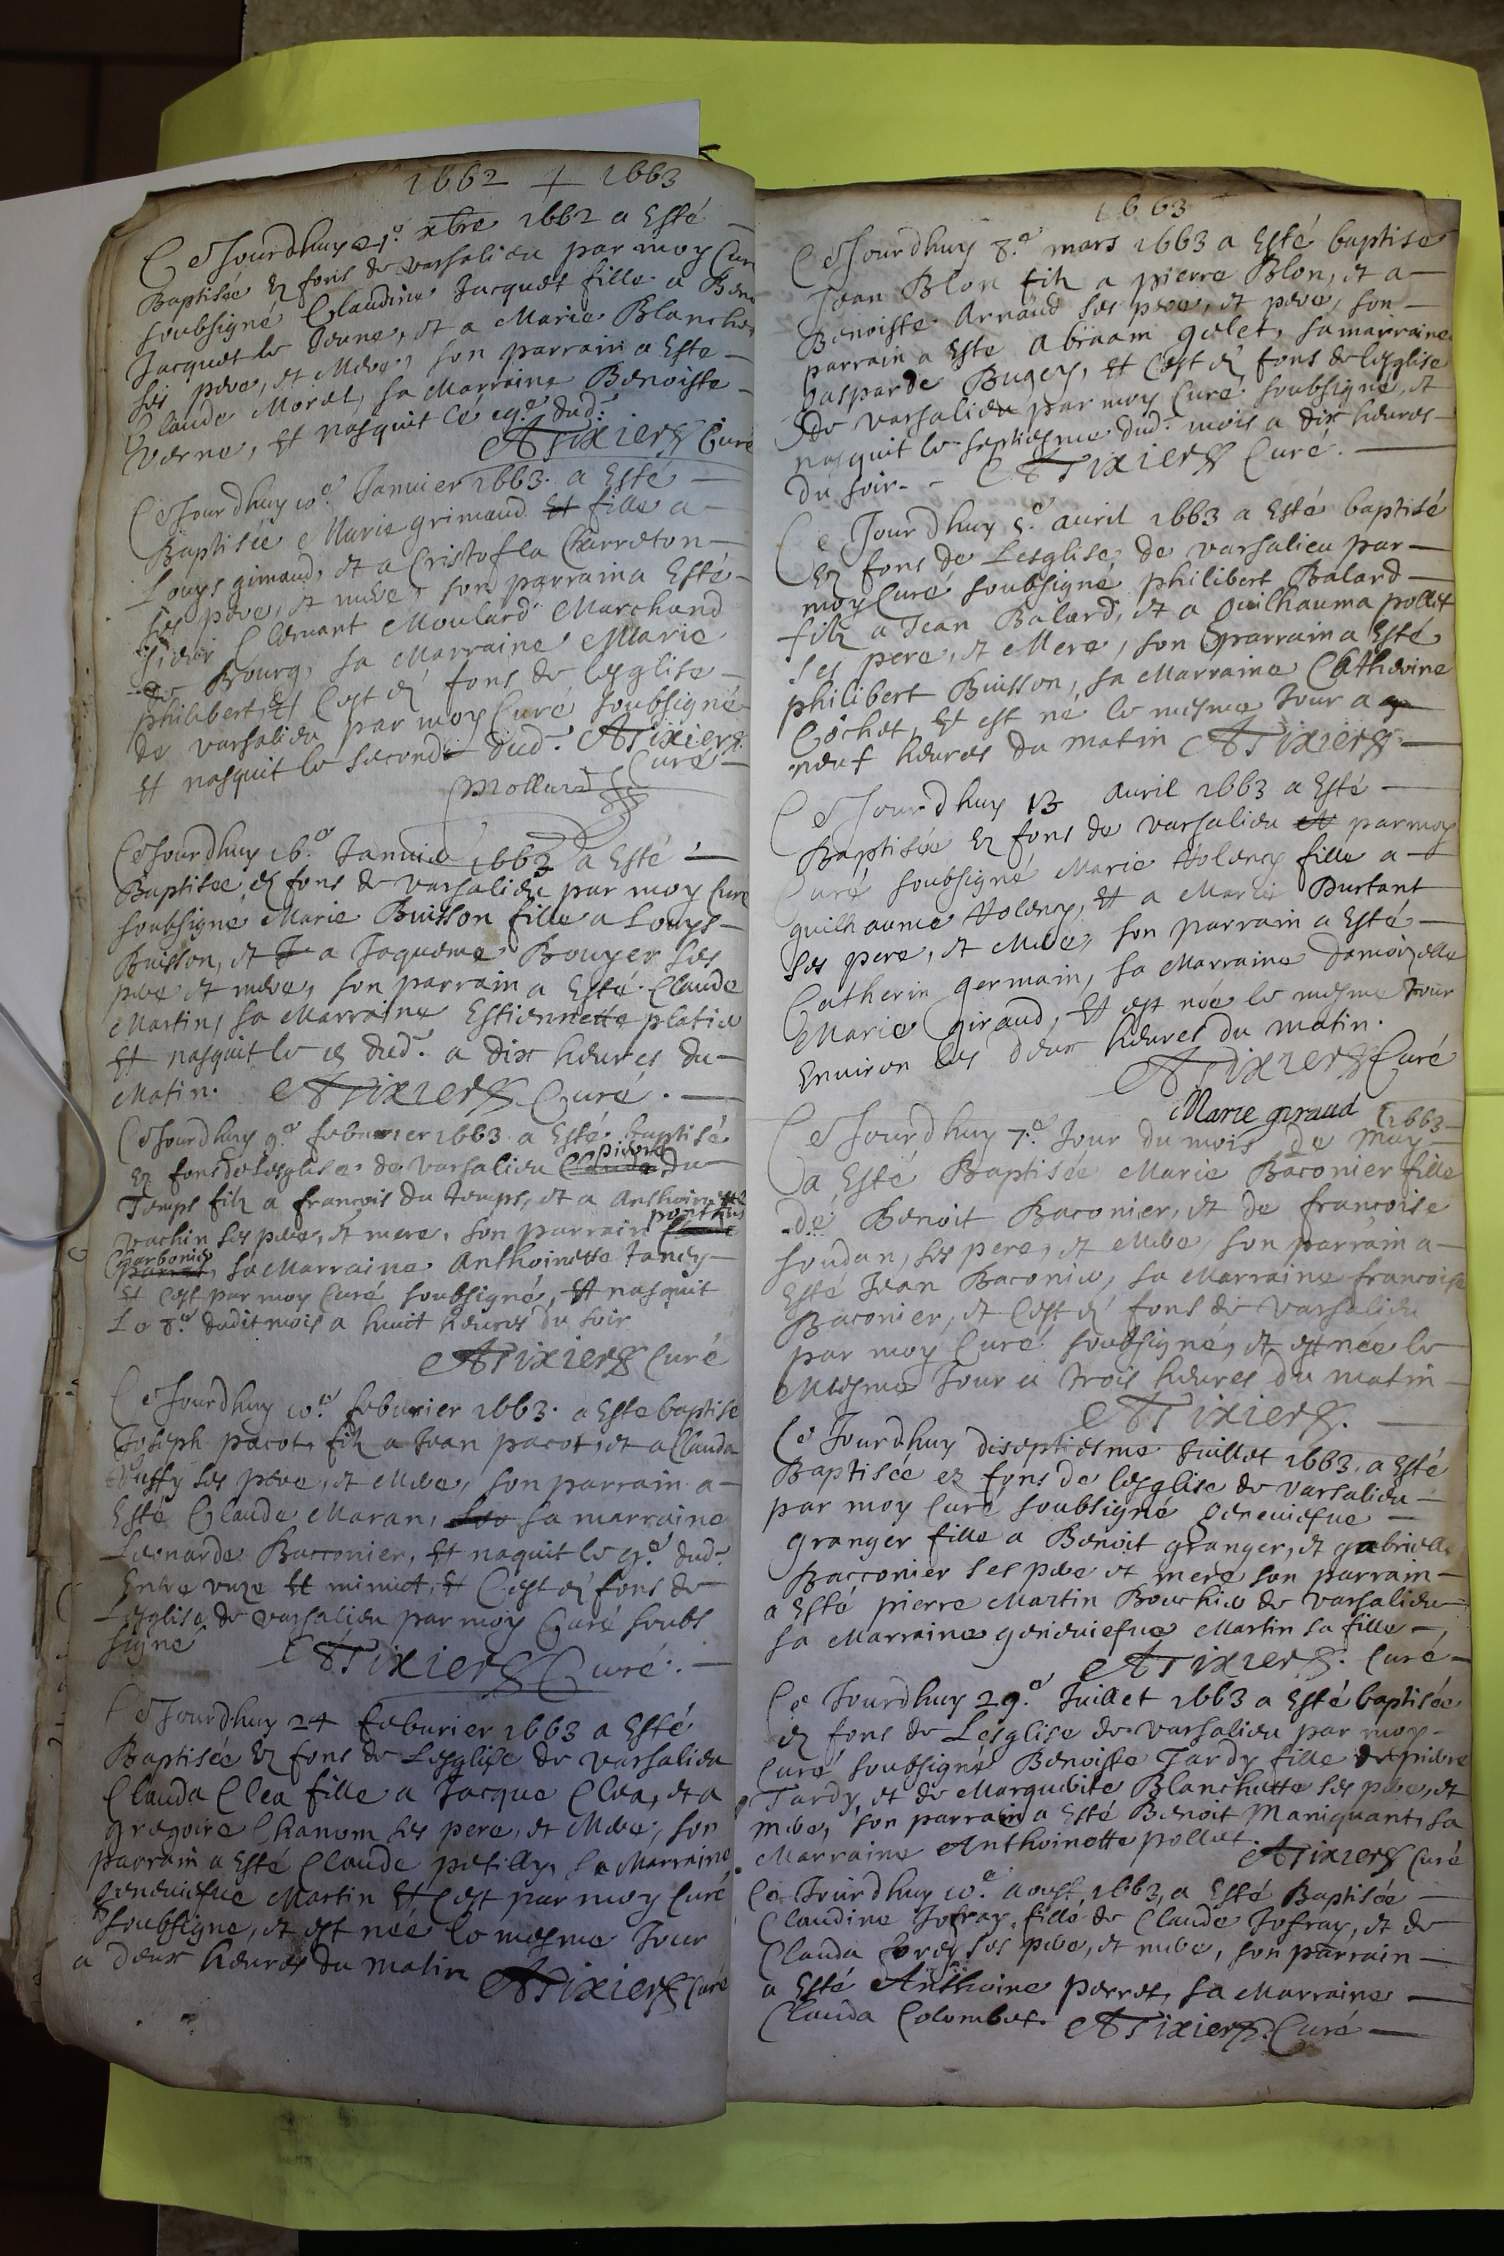 1662 + 1663
Ce Jourdhuy 21.e xbre 1662 a Esté
Baptisée Ez fons de varsalieu par moy Cur
soubsigné Claudine Jacquet fille a Ben
Jacquet le Jeune, et a Marie Blanche
ses pere, et Mere, son parrain a Este
Claude Moret, sa Marraine Benoiste
verne, Et nasquit le 19.e dud.
ATixiers Curé
Ce Jourdhuy 10.e Januier 1663. a Esté
Baptisée Marie grimaud Et fille a
Louys gimaud, et a Cristofla Charreton
ses pere, et mere, son parrain a Esté
sieur Clemant Moulard Marchand
de Bourg, sa Marraine Marie
philibert, Et C'est ez fons de lesglise
de varsalieu par moy Curé soubsigné
Et nasquit le second dud. ATixiers
Curé
Mollard
Ce Jourdhuy 16.e Januier 1663 a Esté
Baptisée ez fons de varsalieu par moy Curé
soubsigné Marie Buisson fille a Louys
Buisson, et a Jaqueme Bouyer ses
pere et mere, son parrain a Esté Claude
Martin, sa Marraine Estiennette platie
Et nasquit le dud. a dix heures du
Matin. ATixiers Curé.
Ce Jourdhuy 9.e feburier 1663 a Esté baptisé
Ez fons de Lesglise de varsalieu Claude pierre du
Temps filz a francois du temps, et a Anthoinette
vachin ses pere, et mere, son parrain ponthus
Charbonier, sa Marraine Anthoinette Tandy
Et C'est par moy Curé soubsigné, Et nasquit
Le 8.e dudit mois a huit heures du soir
ATixiers Curé
Ce Jourdhuy 10.e feburier 1663. a Este baptise
Joseph pacot, filz a Jean pacot, et a Clauda
ses pere, et Mere, son parrain a
Esté Claude Maran, sa marraine
Leonarde Bacconier, Et naquit le 9.e dud.
Entre unze Et minuit, Et C'est ez fons de
Lesglise de varsalieu par moy Curé soubs
signé ATixiers Curé.
Ce Jourdhuy 24 feburier 1663 a Esté
Baptisée Ez fons de Lesglise de varsalieu
Clauda Clea fille a Jacque Clea, et a
gregoire Chanom ses pere, et Mere, son
parrain a Esté Claude petilly, sa Marraine
geneuiefue Martin Et C'est par moy Curé
soubsigne, et est née le mesme Jour
a deux heures du matin ATixiers Curé
1663
Ce Jourdhuy 8.e mars 1663 a Esté baptise
Jean Blon filz a pierre Blon, et a
Benoiste Arnaud ses pere, et pere, son
parrain a Este abraam golet, sa marraine
gasparde Bugey, Et C'est ez fons de lesglise
de varsalieu par moy Curé soubsigne, et
nasquit le septiesme dud. mois a dix heures
du soir. ATixiers Curé.
Ce Jourdhuy 5.e auril 1663 a Esté baptisé
Ez fons de Lesglise de varsalieu par
moy Curé soubsigné philibert Balard
filz a Jean Balard, et a guilhauma pollet
ses pere, et Mere, son parrain a Esté
philibert Buisson, sa Marraine Catherine
Cochet, Et est né le mesme Jour a
neuf heures du matin ATixiers
Ce Jourdhuy 13 auril 1663 a Esté
Baptisée Ez fons de varsalieu par moy
Curé soubsigné Marie Holdery fille a
guilhaume Holdery, Et a Marie Durtant
ses pere, et Mere, son parrain a Esté
Catherin germain, sa Marraine Damoizelle
Marie giraud, Et est née le mesme Jour
Environ les deux heures du matin.
ATixiers Curé
Marie giraud
Ce Jourdhuy 7.e Jour du mois de may 1663
a Esté Baptisée Marie Baconier fille
de Benoit Baconier, et de francoise
soudan, ses pere, et Mere, son parrain a
Esté Jean Baconier, sa Marraine francoise
Baconier, et C'est ez fons de varsalieu
par moy Curé soubsigné, et est née le
Mesme Jour a trois heures du matin
ATixiers.
Ce Jourdhuy diseptiesme Juillet 1663. a Esté
Baptisée ez fons de lesglise de varsalieu
par moy Curé soubsigné geneuiefue
granger fille a Benoit granger, et gabrielle
Bacconier ses pere et mere son parrain
a Esté pierre Martin Bouchier de varsalieu
sa Marraine geneuiefue Martin sa fille
ATixiers. Curé
Ce Jourdhuy 29.e Juillet 1663 a Esté baptisée
ez fons de Lesglise de varsalieu par moy
Curé soubsigné Benoiste Tardy fille de pierre
Tardy, et de Marguerite Blanchette ses pere, et
mere, son parrain a Esté Benoit Maniquant, sa
Marraine Anthoinette pollet.
ATixiers Curé
Ce Jourdhuy 10.e aoust 1663, a Esté Baptisée
Claudine Jofray, fille de Claude Jofray, et de
Clauda ses pere, et mere, son parrain
a Esté Anthoine perret, sa Marraine
Clauda Colombet. ATixiers. Curé